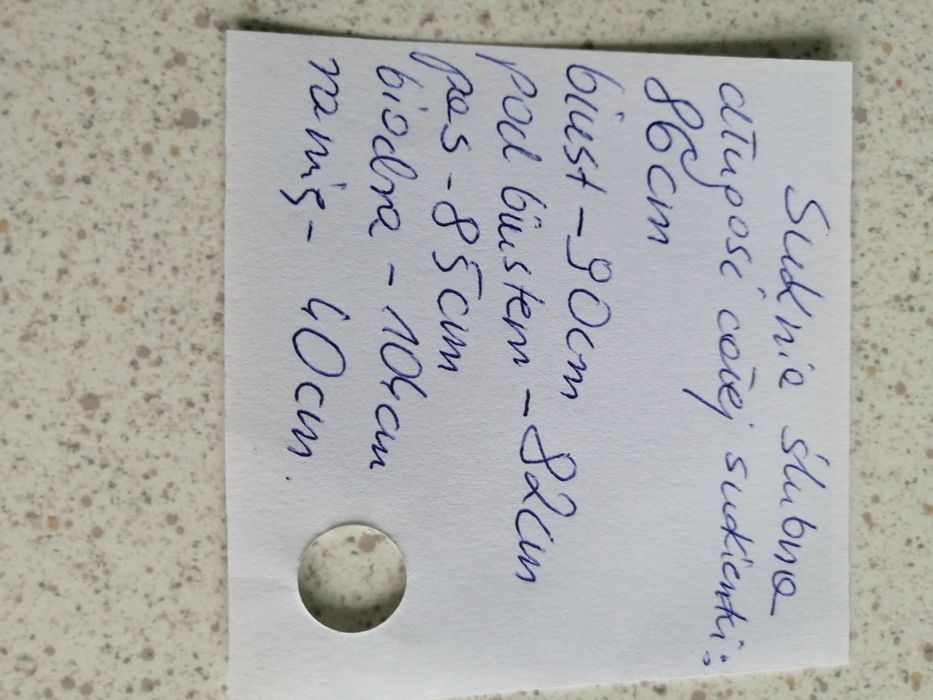 Suknia ślubna
długość całej sukienki:
86cm
biust - 90cm
pod biustem - 82cm
pas - 85cm
biodra - 104cm
ramię - 40cm.